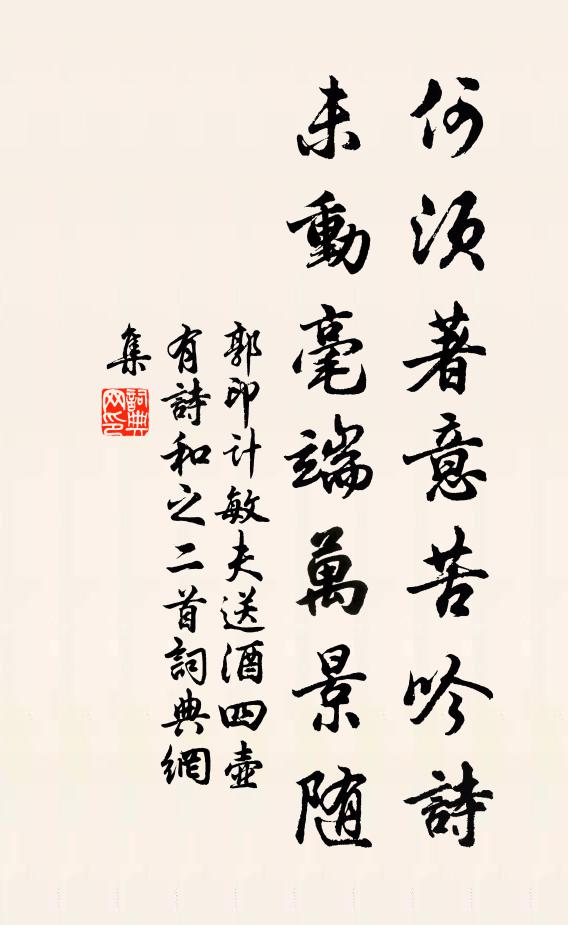 何須著意苦吟詩
未動毫端萬景随
郭印計敏夫送酒四壺
有詩和之二首詞典網
集
詞典
网印